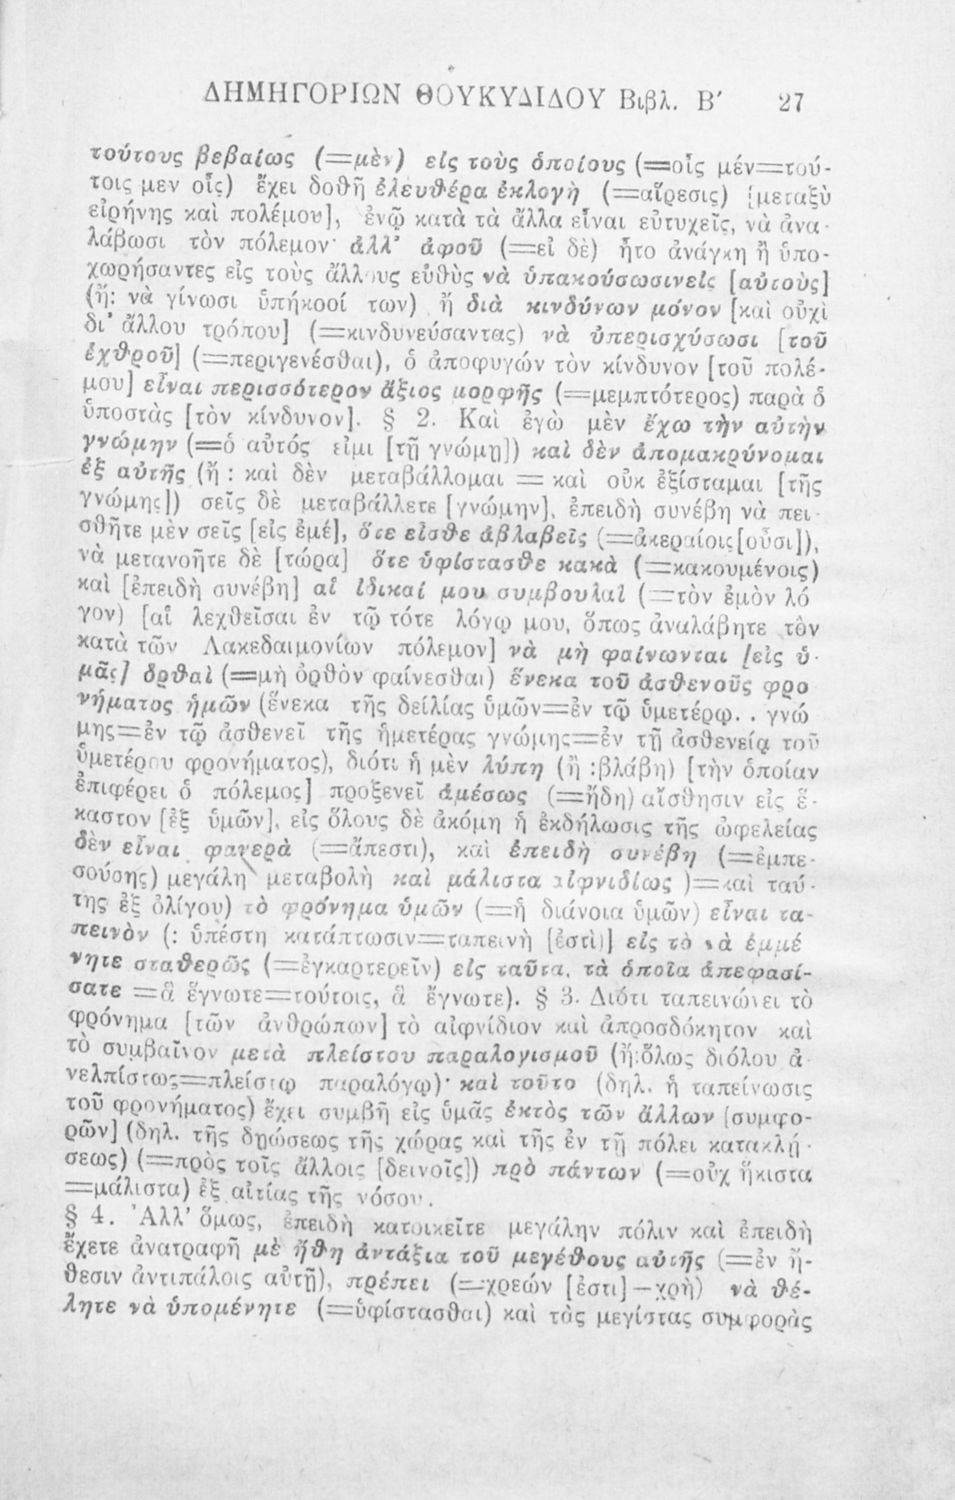 ΔΗΜΗΓΟΡΙΩΝ ΘΟΥΚΥΔΙΔΟΥ Βιβλ. Β′ 27
τούτους βεβαίως (=μὲν) εἰς τοὺς ὁποίους (=οἷς μέν=τού-
τοις μεν οἷς) ἔχει δοθῆ ἐλευθέρα ἐκλογὴ (=αἵρεσις) [μεταξὺ
εἰρήνης καὶ πολέμου], ἐνῷ κατὰ τὰ ἄλλα εἶναι εὐτυχεῖς, νὰ ἀνα-
λάβωσι τὸν πόλεμον· ἀλλ’ ἀφοῦ (=εἰ δὲ) ἦτο ἀνάγκη ἢ ὑπο-
χωρήσαντες εἰς τοὺς ἄλλους εὐθὺς νὰ ὑπακούσωσινεἰς [αὐτοὺς]
(ἤ: νὰ γίνωσι ὑπήκοοί των) ἢ διὰ κινδύνων μόνον [καὶ οὐχὶ
δι’ ἄλλου τρόπου] (=κινδυνεύσαντας) νὰ ὑπερισχύσωσι [τοῦ
ἐχθροῦ] (=περιγενέσθαι), ὁ ἀποφυγών τὸν κίνδυνον [τοῦ πολέ-
μου] εἶναι περισσότερον ἄξιος μορφῆς (=μεμπτότερος) παρὰ ὁ
ὑποστὰς [τὸν κίνδυνον]. § 2. Καὶ ἐγὼ μὲν ἔχω τὴν αὐτὴν
γνώμην (=ὁ αὐτός εἰμι [τῇ γνώμῃ]) καὶ δὲν ἀπομακρύνομαι
ἐξ αὐτῆς (ἤ : καὶ δὲν μεταβάλλομαι = καὶ οὐκ ἐξίσταμαι [τῆς
γνώμης]) σεῖς δὲ μεταβάλλετε [γνώμην], ἐπειδὴ συνέβη νὰ πει-
σθῆτε μὲν σεῖς [εἰς ἐμέ], ὅτε εἶσθε ἀβλαβεῖς (=ἀκεραίοις[οὖσι]),
νὰ μετανοῆτε δὲ [τώρα] ὅτε ὑφίστασθε κακὰ (=κακουμένοις)
καὶ [ἐπειδὴ συνέβη] αἱ ἰδικαί μου συμβουλαὶ (=τὸν ἐμὸν λό
γον) [αἱ λεχθεῖσαι ἐν τῷ τότε λόγῳ μου, ὅπως ἀναλάβητε τὸν
κατὰ τῶν Λακεδαιμονίων πόλεμον] νὰ μὴ φαίνωνται [εἰς ὑ-
μᾶς] ὀρθαὶ (=μὴ ὀρθὸν φαίνεσθαι) ἕνεκα τοῦ ἀσθενοῦς φρο
νήματος ἡμῶν (ἕνεκα τῆς δειλίας ὑμῶν=ἐν τῷ ὑμετέρῳ. . γνώ
μης=ἐν τῷ ἀσθενεῖ τῆς ἡμετέρας γνώμης=ἐν τῇ ἀσθενείᾳ τοῦ
ὑμετέρου φρονήματος), διότι ἡ μὲν λύπη (ἢ :βλάβη) [τὴν ὁποίαν
ἐπιφέρει ὁ πόλεμος] προξενεῖ ἀμέσως (=ἤδη) αἴσθησιν εἰς ἕ-
καστον [ἐξ ὑμῶν], εἰς ὅλους δὲ ἀκόμη ἡ ἐκδήλωσις τῆς ὠφελείας
δὲν εἶναι φανερὰ (=ἄπεστι), καὶ ἐπειδὴ συνέβη (=ἐμπε-
σούσης) μεγάλη μεταβολὴ καὶ μάλιστα αἰφνιδίως )=καὶ ταύ-
της ἐξ ὀλίγου) τὸ φρόνημα ὑμῶν (=ἡ διάνοια ὑμῶν) εἶναι τα-
πεινὸν (: ὑπέστη κατάπτωσιν=ταπεινὴ [ἐστὶ]] εἰς τὸ νὰ ἐμμέ
νητε σταθερῶς (=ἐγκαρτερεῖν) εἰς ταῦτα, τὰ ὁποῖα ἀπεφασί-
σατε =ἃ ἔγνωτε=τούτοις, ἃ ἔγνωτε). § 3. Διότι ταπεινώνει τὸ
φρόνημα [τῶν ἀνθρώπων] τὸ αἰφνίδιον καὶ ἀπροσδόκητον καὶ
τὸ συμβαῖνον μετὰ πλείστου παραλογισμοῦ (ἤ:ὅλως διόλου ἀ-
νελπίστως=πλείστῳ παραλόγῳ)· καὶ τοῦτο (δηλ. ἡ ταπείνωσις
τοῦ φρονήματος) ἔχει συμβῆ εἰς ὑμᾶς ἐκτὸς τῶν ἄλλων [συμφο-
ρῶν] (δηλ. τῆς δῃώσεως τῆς χώρας καὶ τῆς ἐν τῇ πόλει κατακλῄ-
σεως) (=πρὸς τοῖς ἄλλοις [δεινοῖς]) πρὸ πάντων (=οὐχ ἥκιστα
=μάλιστα) ἐξ αἰτίας τῆς νόσου.
§ 4. Ἀλλ’ ὅμως, ἐπειδὴ κατοικεῖτε μεγάλην πόλιν καὶ ἐπειδὴ
ἔχετε ἀνατραφῆ μὲ ἤθη ἀντάξια τοῦ μεγέθους αὐτῆς (=ἐν ἤ-
θεσιν ἀντιπάλοις αὐτῇ), πρέπει (=χρεών [ἐστι]—χρὴ) νὰ θέ-
λητε νὰ ὑπομένητε (=ὑφίστασθαι) καὶ τὰς μεγίστας συμφορὰς